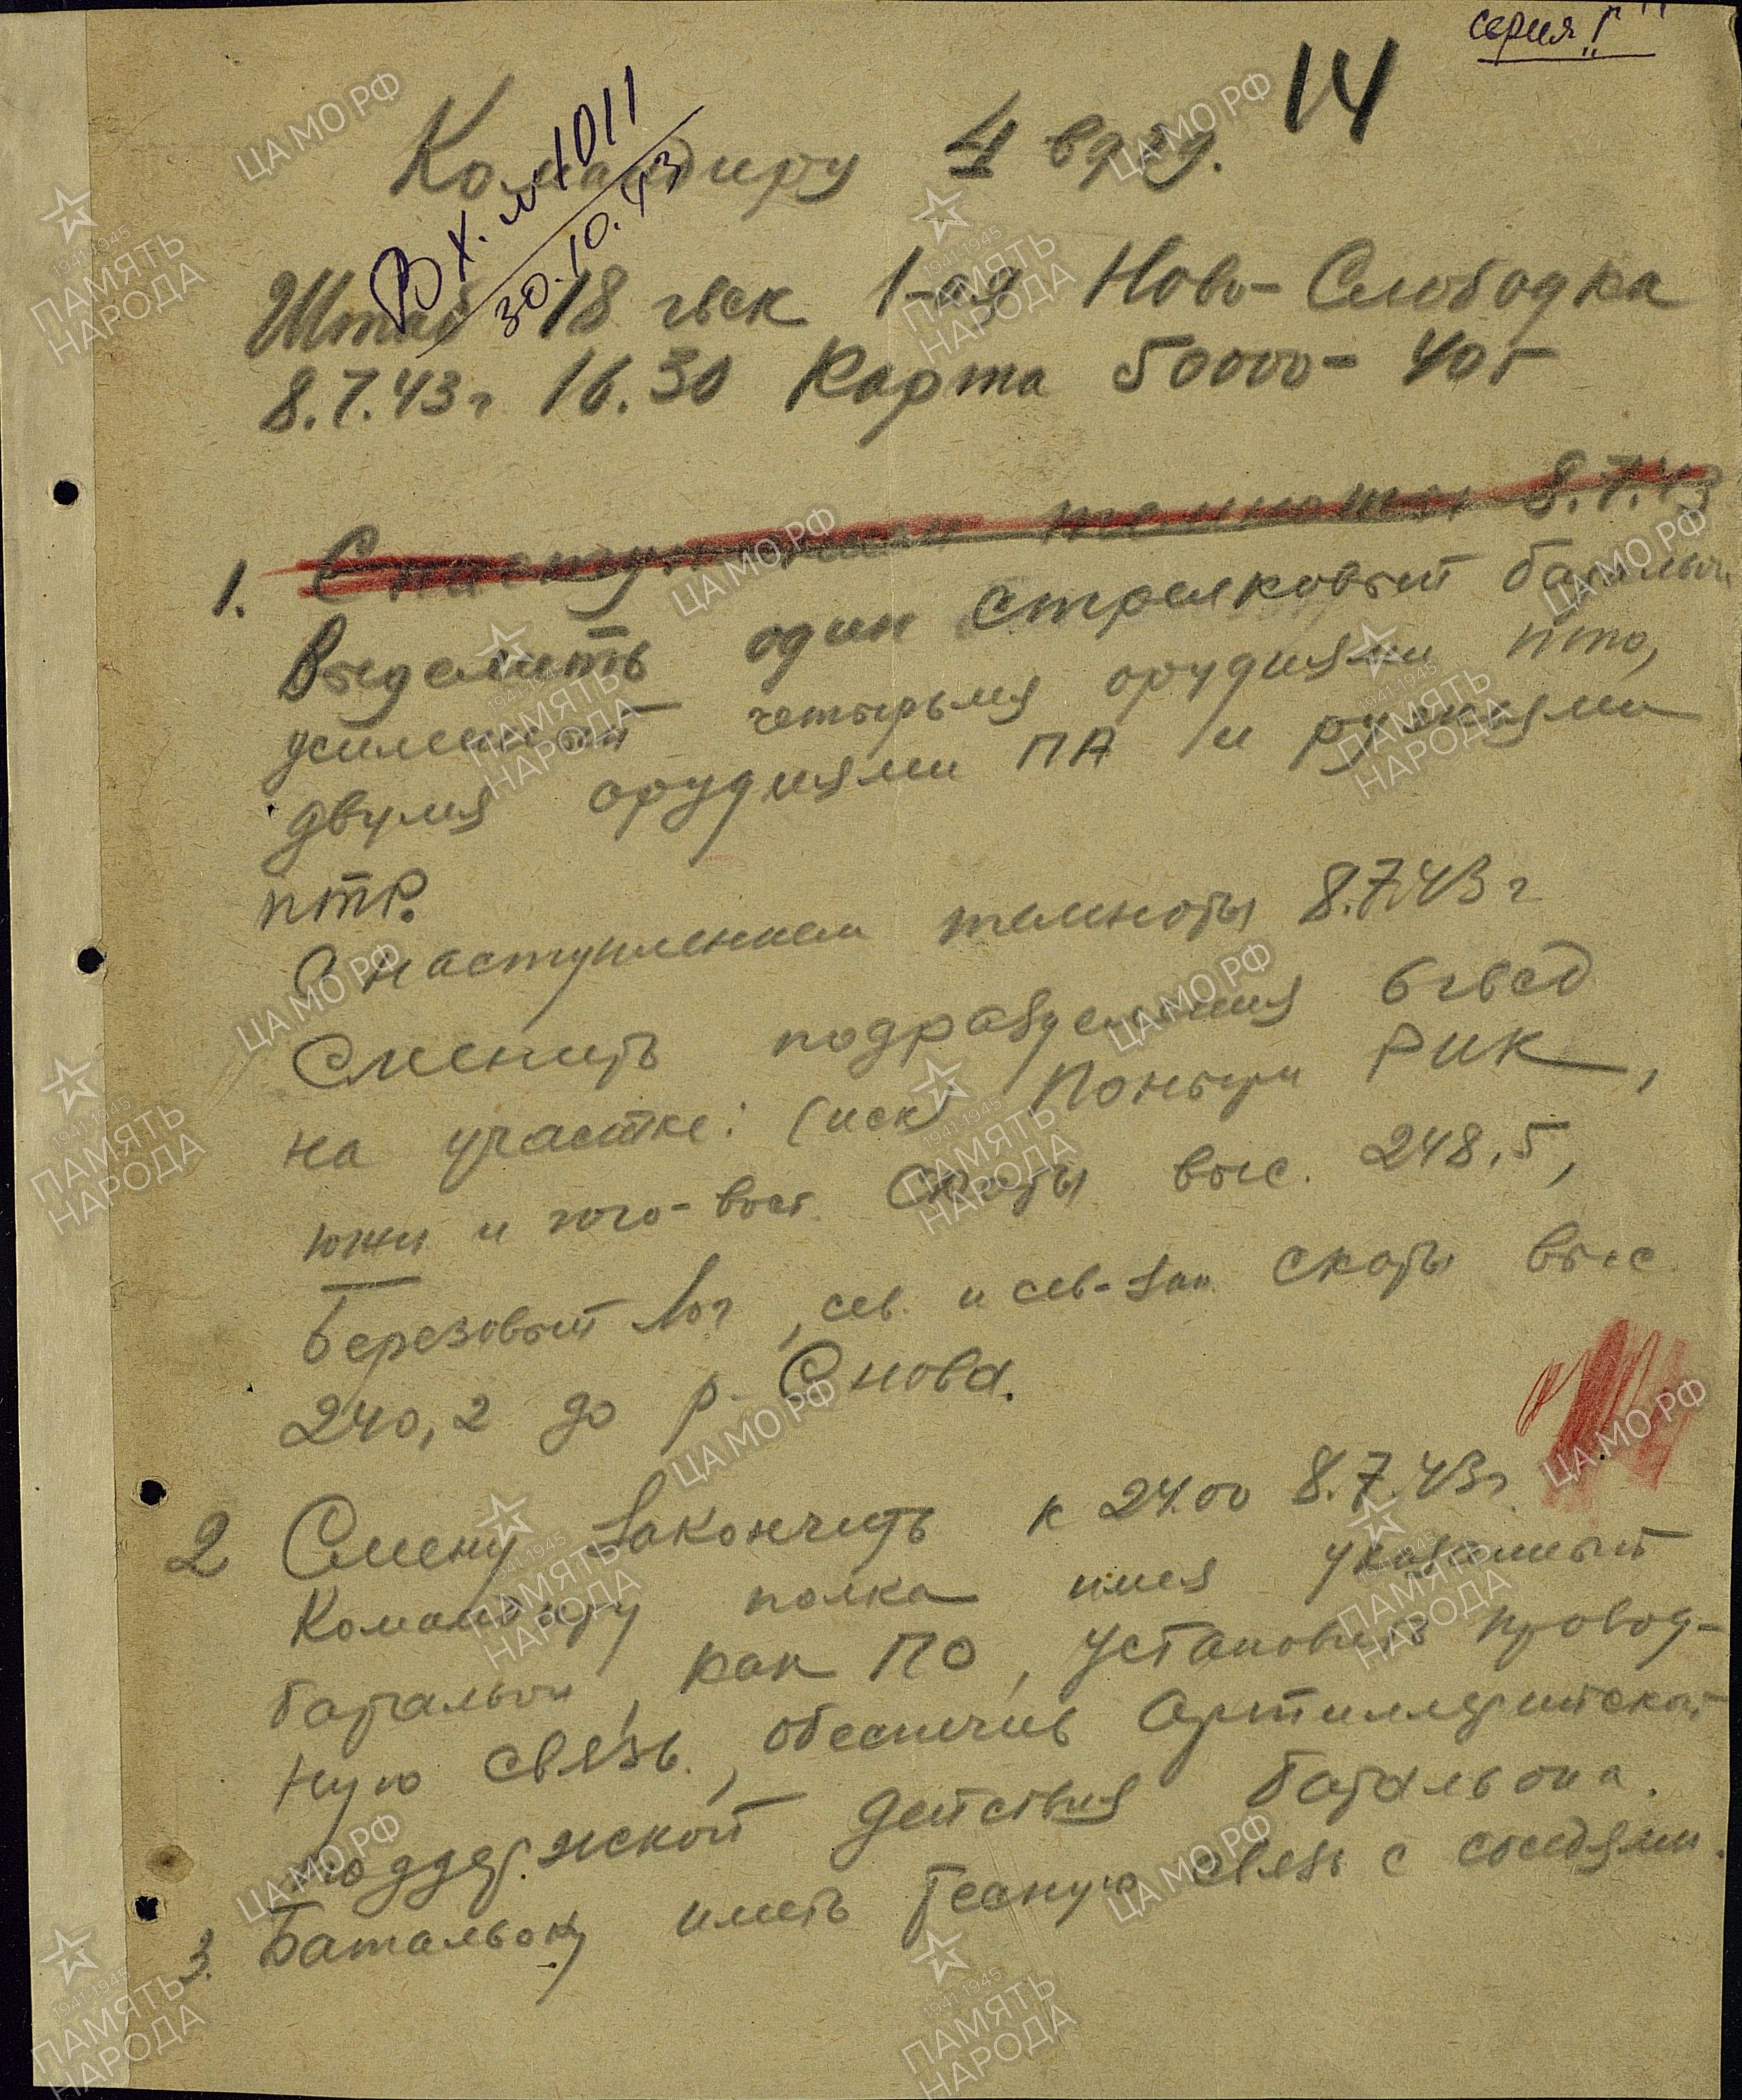 серия "Г"
14
Командиру 4 вдбд.
Вх. №1011
30.10.43
Штаб 18 гвск 1-ая Ново-Слободка
8.7.43г 16.30 Карта 50000-40г
1. С наступлением темноты 8.7.43
Выделить один стрелковый батальон
усиленный четырьмя орудиями ПТО,
двумя орудиями ПА и ружьями
ПТР.
С наступлением темноты 8.7.43г
Сменить подразделения 6гвсд
на участке: (иск) Поныри РИК,
южн и юго-вост. Скаты выс. 248,5,
Березовый Лог, сев. и сев-зап. скаты выс
240,2 до р. Снова.
2 Смену закончить к 24.00 8.7.43г.
Командиру полка имея указанный
батальон, как ПО, установить провод-
ную связь, обеспечив Артиллерийской
поддержкой действия батальона.
3. Батальону иметь тесную связь с соседями.
ЦА МО РФ
1941-1945
ПАМЯТЬ
НАРОДА